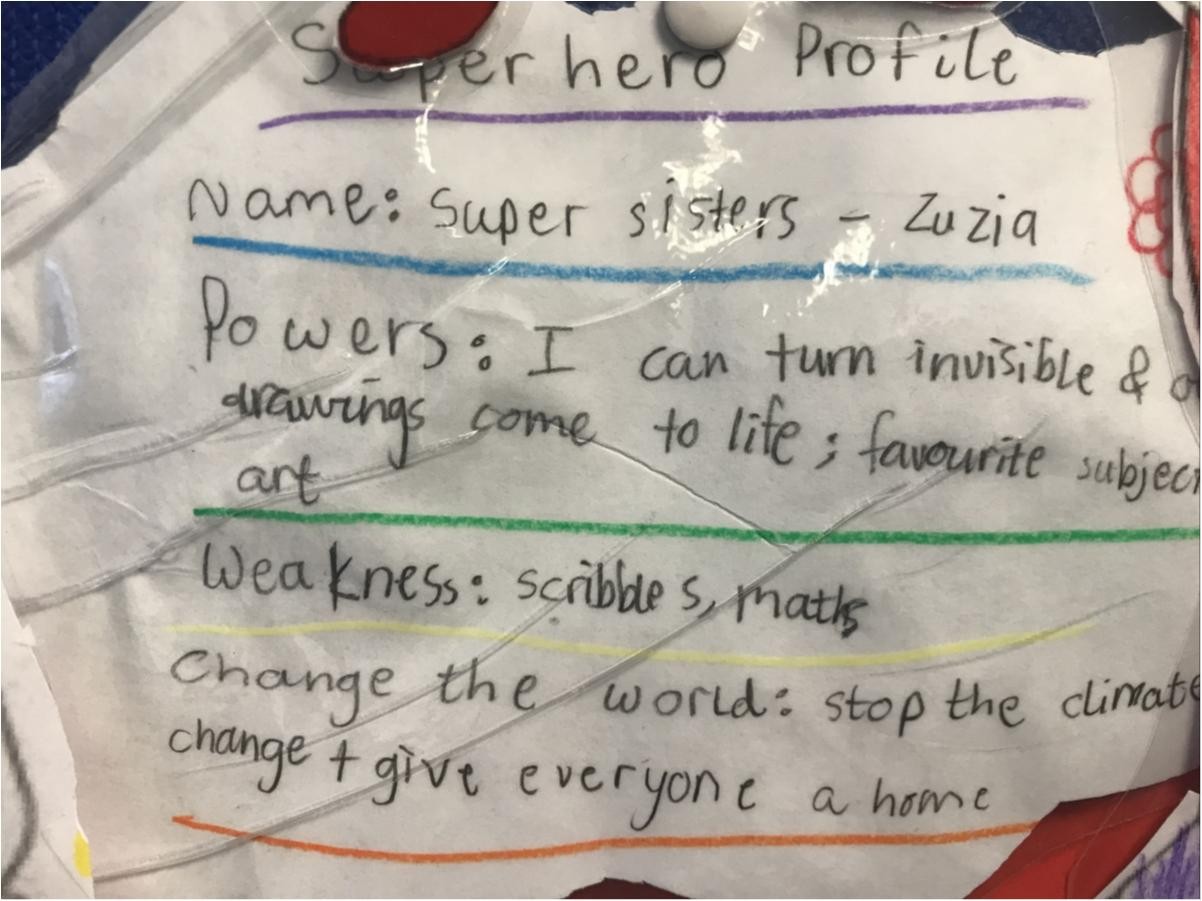 Superhero Profile
Name: Super sisters - Zuzia
Powers: I can turn invisible &
drawings come to life; favourite subject
art
Weakness: scribbles, maths
Change the world: stop the climate
change + give everyone a home